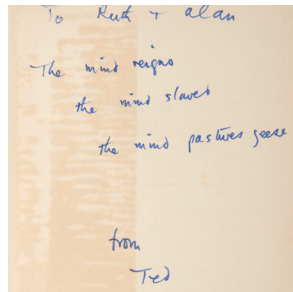 To Ruth + alan
The mind reigns
the mind slaves
the mind pastures geese
from
Ted